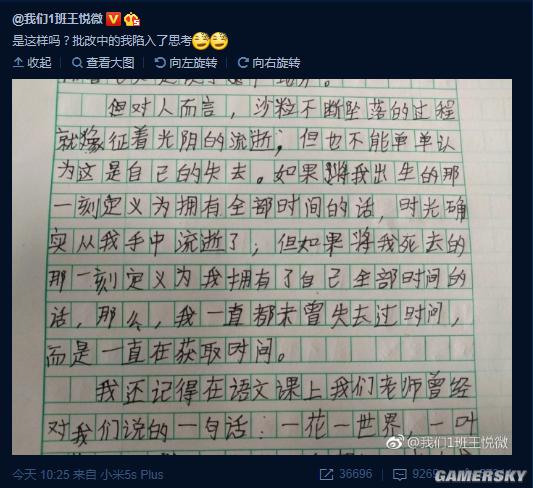 @我们1班王悦微
是这样吗？批改中的我陷入了思考
收起 查看大图 向左旋转 向右旋转
但对人而言，沙粒不断坠落的过程
就像征着光阴的流逝；但也不能单单认
为这是自己的失去。如果将我出生的那
一刻定义为拥有全部时间的话，时光确
实从我手中流逝了；但如果将我死去的
那一刻定义为我拥有了自己全部时间的
话，那么，我一直都未曾失去过时间，
而是一直在获取时间。
我还记得在语文课上我们老师曾经
对我们说的一句话：一花一世界，一叶
@我们1班王悦微
今天 10:25 来自 小米5s Plus 36696 9269
GAMERSKY